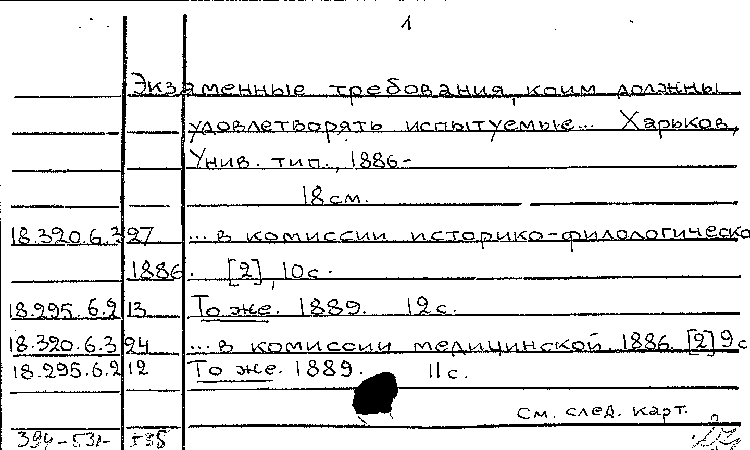 1
Экзаменные требования, коим должны
удовлетворять испытуемые... Харьков,
Унив. тип., 1886-
18 см.
18.320.6.3 27 ...в комиссии историко-филологическо
1886. [2], 10 с.
18.295.6.2 13 То же. 1889. 12 с.
18.320.6.3 24 ...в комиссии медицинской. 1886. [2] 9 с
18.295.6.2 12 То же. 1889. 11 с.
См. след. карт.
394-531-